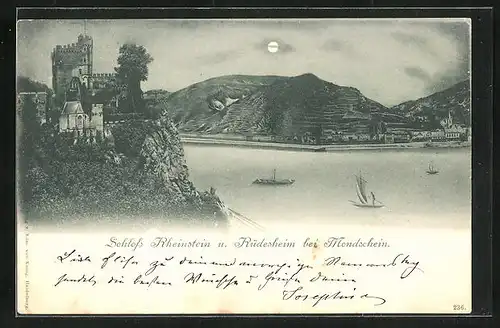 Schloß Rheinstein u. Rüdesheim bei Mondschein.
Liebe Elise zu deinem morgige Namenstag
sendet die besten Wünsche u Grüße Deine
Josephine
236.